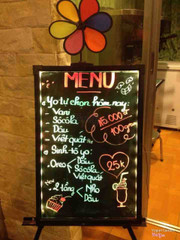 MENU
Yo tự chọn hôm nay:
- Vani
- Sôcôla
- Dâu
- Việt quất
15.000
100gr
- Sinh tố yo:
Oreo
Dâu
Sôcôla
Việt quất
25k
- 2 tầng
Nho
Dâu